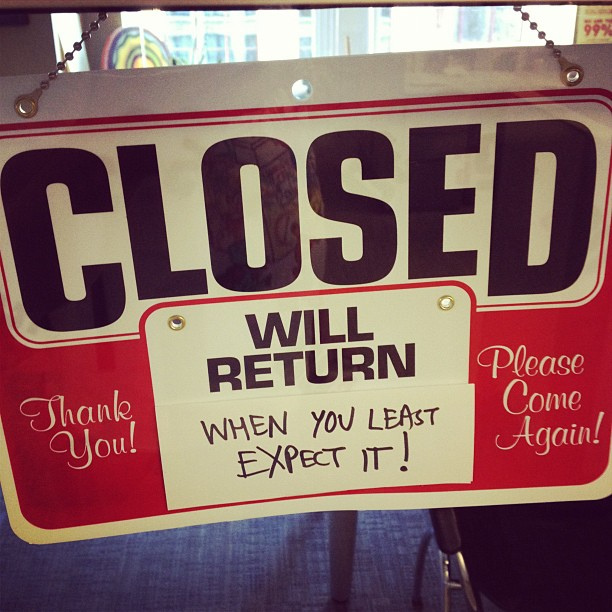 99%
CLOSED
WILL
RETURN
WHEN YOU LEAST
EXPECT IT!
Thank
You!
Please
Come
Again!